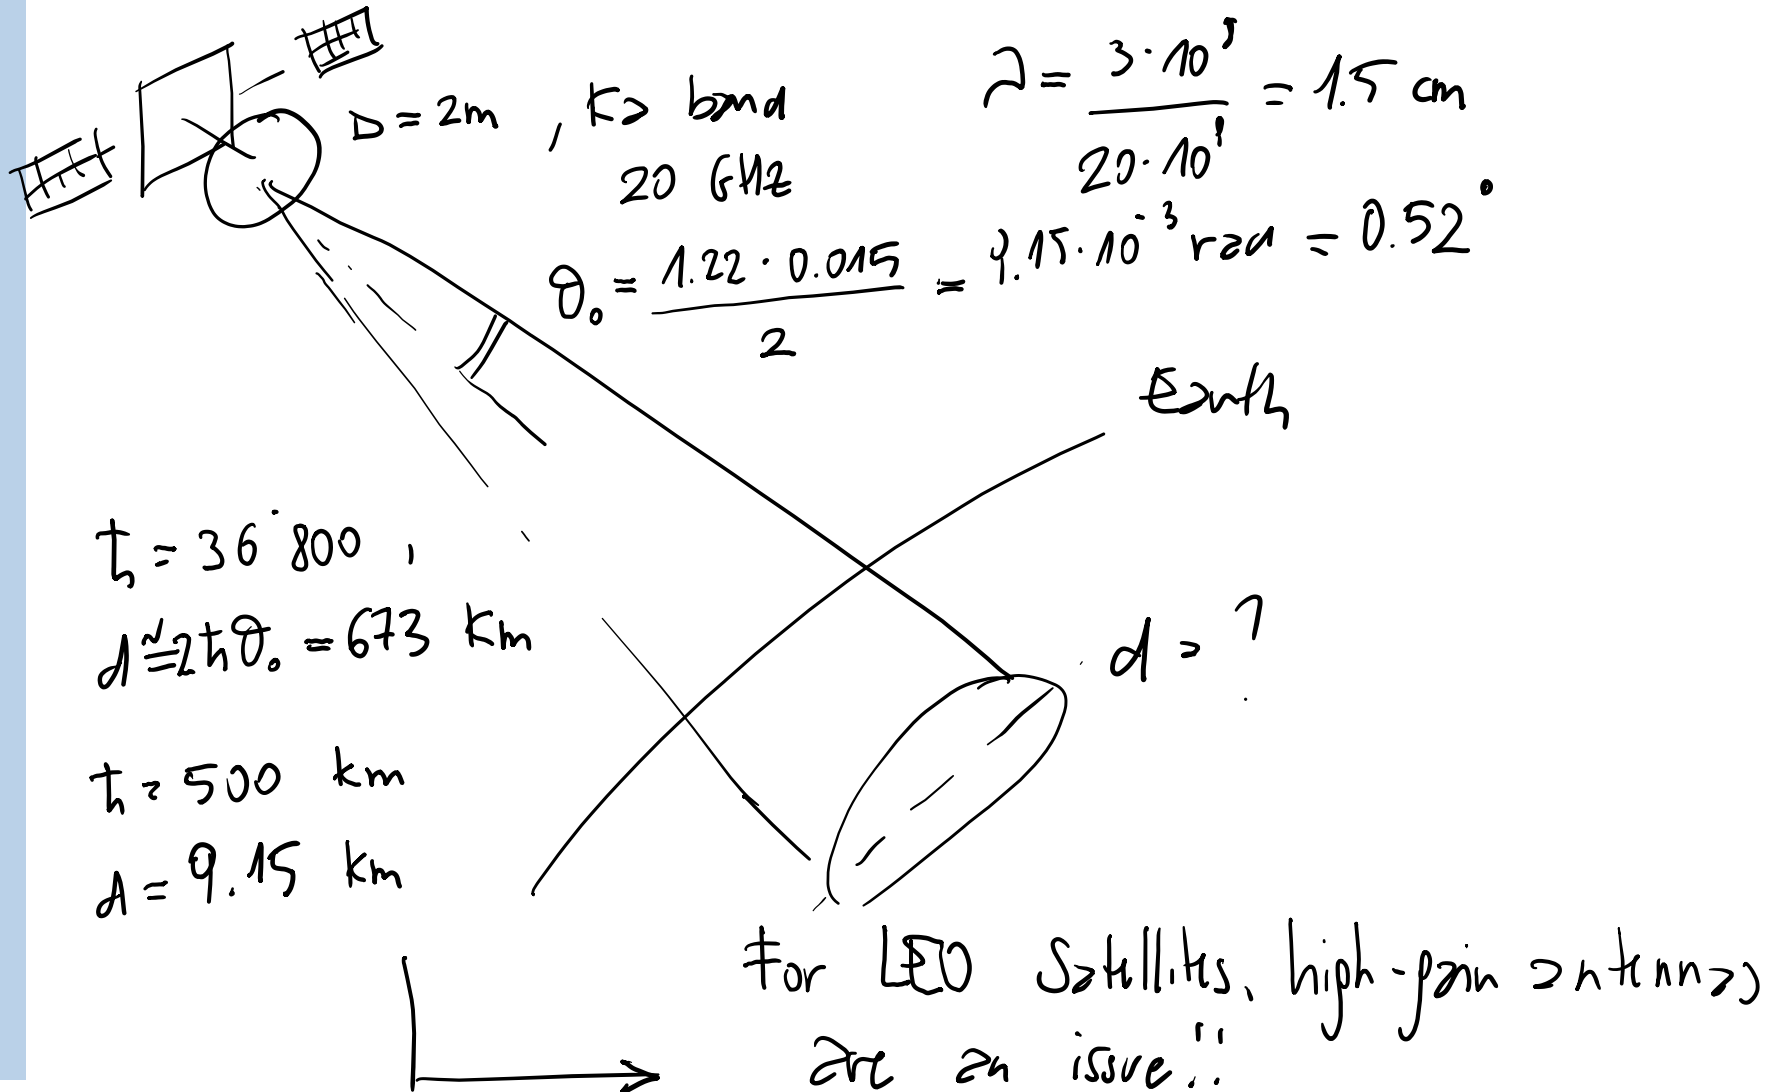 D = 2m , Ka band
20 GHz
λ = 3·10⁸ / 20·10⁹ = 1.5 cm
θ₀ = 1.22 · 0.015 / 2 = 9.15·10⁻³ rad = 0.52°
Earth
h = 36'800 ,
d ≅ 2hθ₀ = 673 km
d = ?
h = 500 km
d = 9.15 km
For LEO satellites, high-gain antennas
are an issue!!